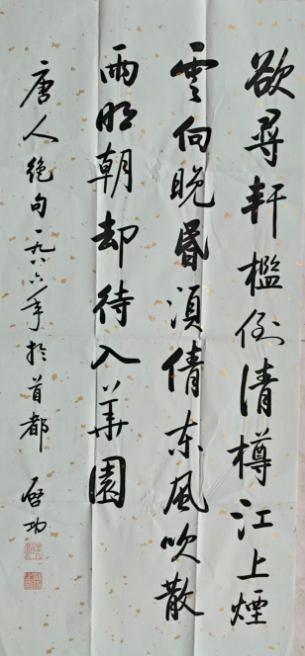 欲尋軒檻倒清樽江上煙
雲向晚昏須倩东風吹散
雨明朝却待入華園
唐人绝句一九八六年於首都 啓功